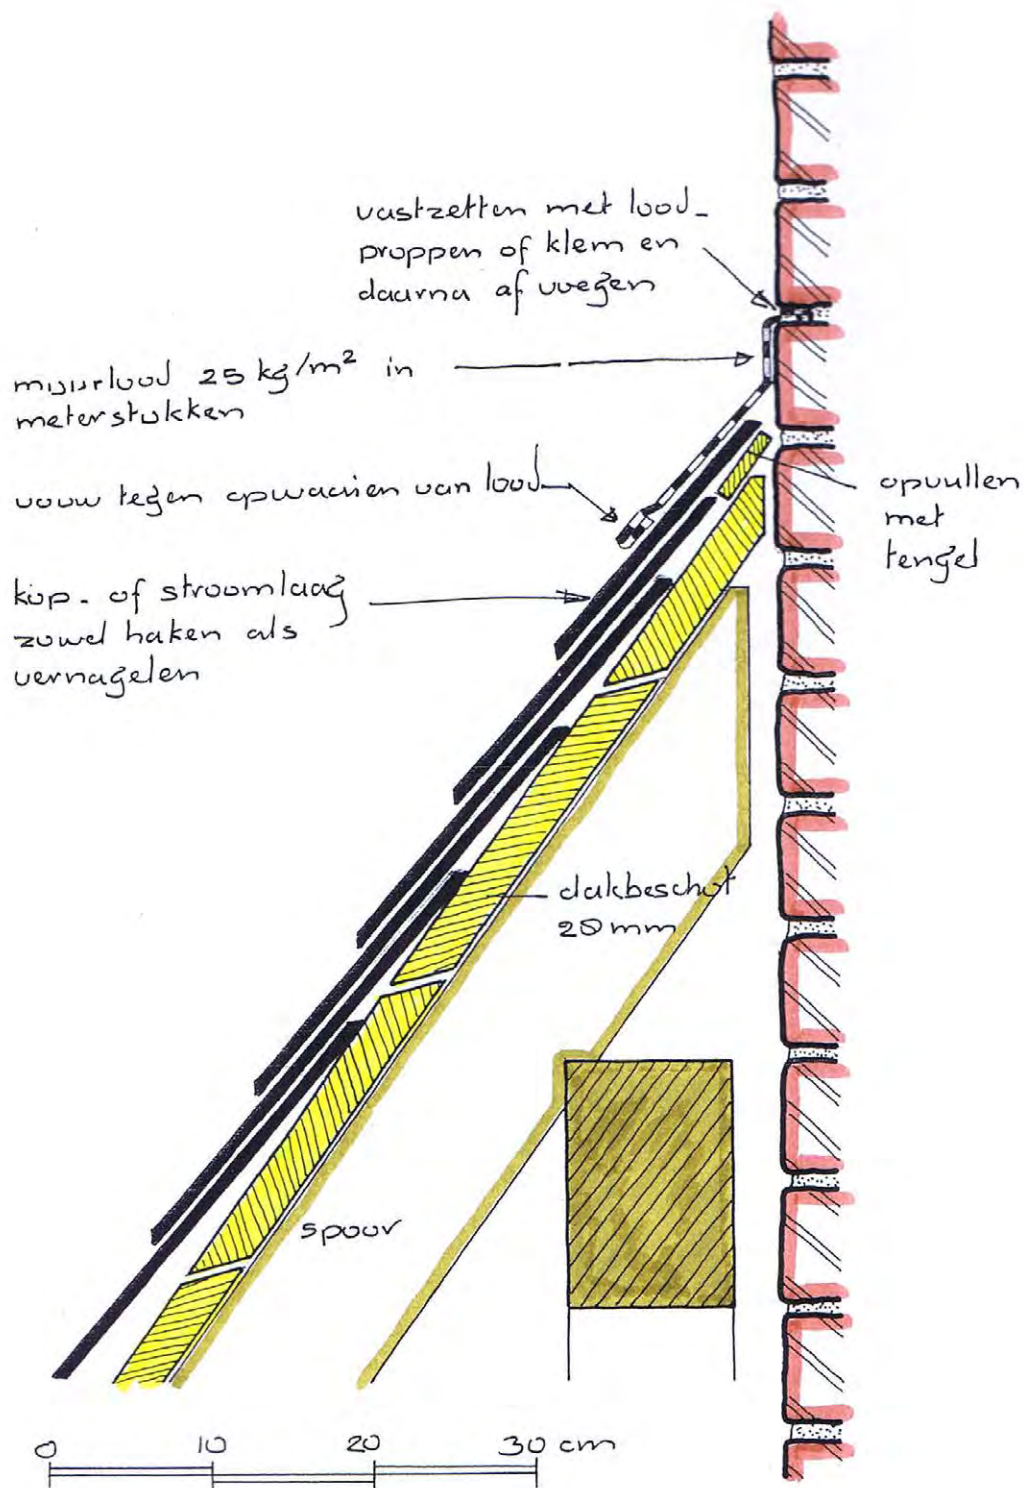 vastzetten met lood-
proppen of klem en
daarna af voegen
muurlood 25 kg/m² in
meterstukken
vouw tegen opwaaien van lood
opvullen
met
tengel
kop- of stroomlaag
zowel haken als
vernagelen
dakbeschot
20 mm
spoor
0 10 20 30 cm